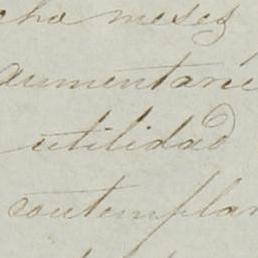 cho meses
aumentarié
utilidad
contemplar